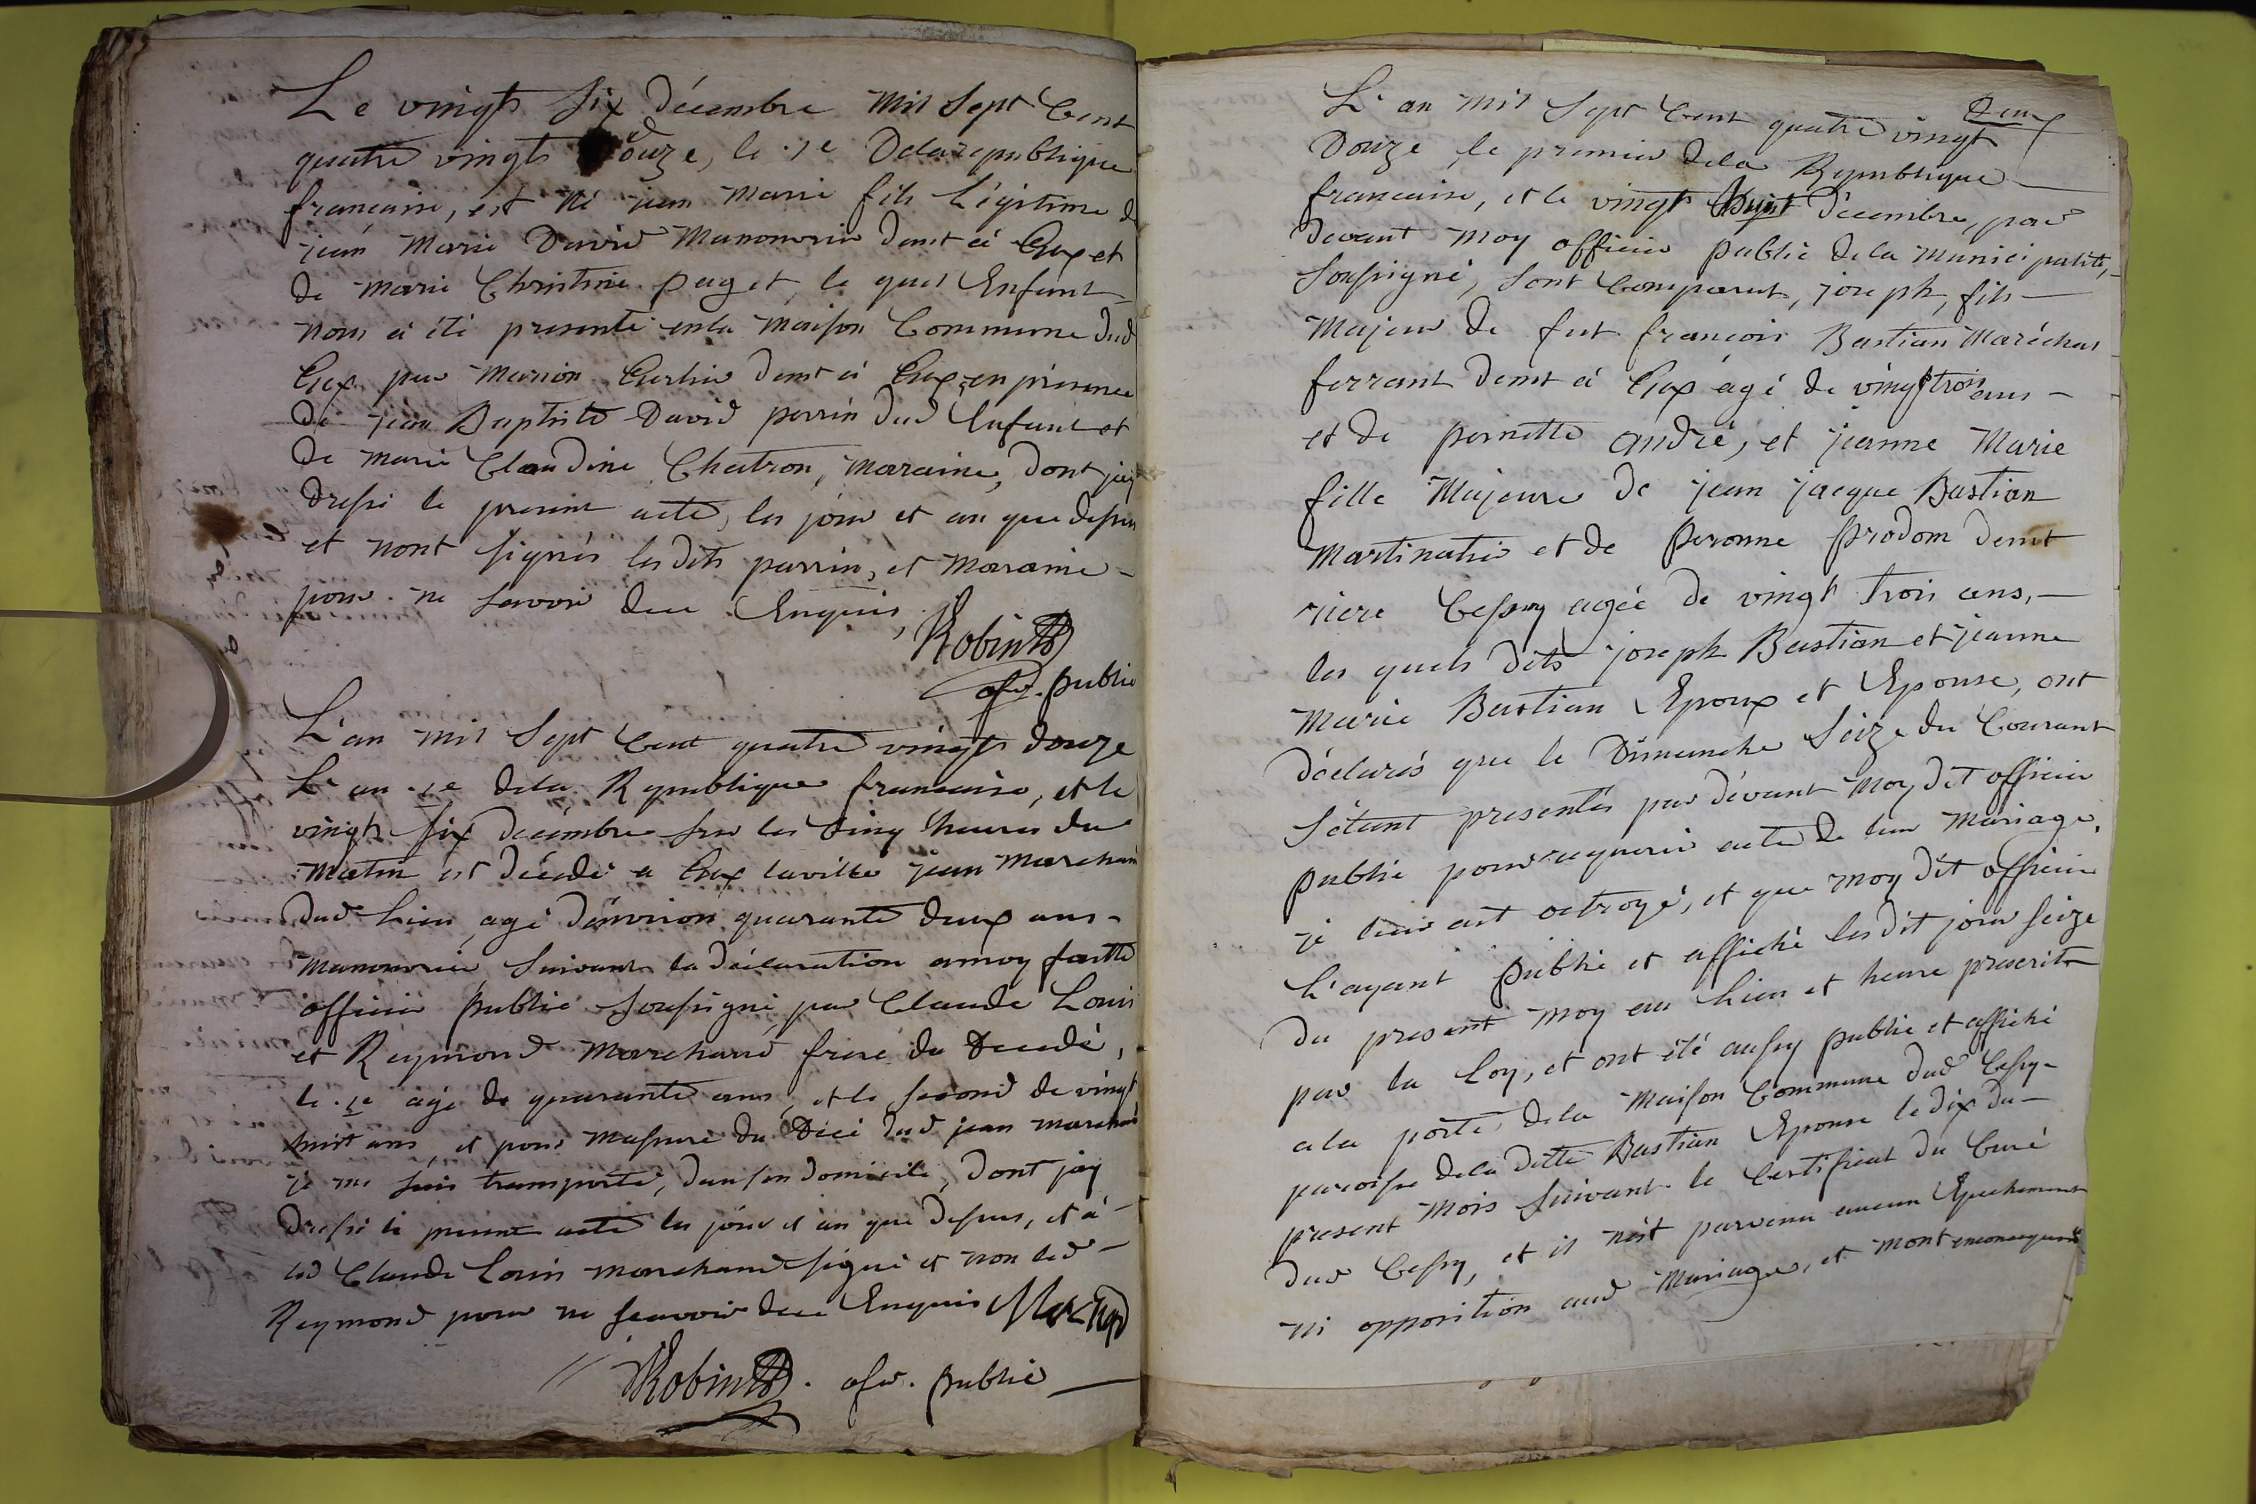 Le vingts six décembre mil sept Cent
quatre vingts douze, le 1e dela republique
francaise, est né jean marie fils légitime de
jean Marie David Manouvrier demt à Gex et
de marie Christine paget, le quel Enfant
nous a été presenté en la maison Commune dud
Gex par Marion demt à Gex, en présence
de jean Baptiste David parrin dud Enfant et
de marie Claudine Chatron, maraine, dont jay
dressé le present acte, les jour et an que dessus
et nont signés les dits parrin, et maraine
pour ne savoir dece Enquis,
Robin
ofr. public
L'an mil Sept Cent quatre vingts douze
L'an 1e dela Republique francaise, et le
vingts six décembre sur les Cinq heures du
matin est décédé a Gex laville jean Marchand
dud Lieu, agé dénviron quarante deux ans
manouvrier, suivant la déclaration amoy faitte
officier public soussigné, par Claude Louis
et Reymond Marchand frere du Decedé,
le 1e agé de quarante ans, et le second de vingt
huit ans, et pour massuré du Décé dud jean marchand
je me suis transporté, dans son domicile, dont jay
dressé le present acte les jour et an que dessus, et a
led Claude Louis marchand signé et non led
Reymond pour ne scavoir dece Enquis Marchand
Robin . ofr. public
L'an mil Sept Cent quatre vingt
Douze, le premier dela Republique
francaise, et le vingt huit décembre, par
devant moy officier public dela municipalité,
soussigné, sont Comparut, joseph, fils
majeur de fut francois Bastian Maréchal
ferrant demt à Gex agé de vingt trois ans
et de pernette andré, et jeanne Marie
fille Majeure de jean jacque Bastian
Martinatie et de Peronne Prodom demt
riere Cessy agée de vingt trois ans,
les quels dits joseph Bastian et jeanne
Marie Bastian Epoux et Epouse, ont
déclarés que le Dimanche Seize du Courant
S'étant presentés par dévant Moy dit officier
public pour requerir acte de leur Mariage,
je leur ait octroyé, et que moy dit officier
L'ayant publié et affiché lesdit jour seize
du present moy au Lieu et heure prescrits
par la Loy, et ont été aussy publié et affiché
a la porte dela Maison Commune dud Cessy
paroisse dela ditte Bastian Epouse le dix du
present mois suivant le Certificat du Curé
dud Cessy, et il nést parvenu aucun Epechement
ni opposition aud Mariage, et mont